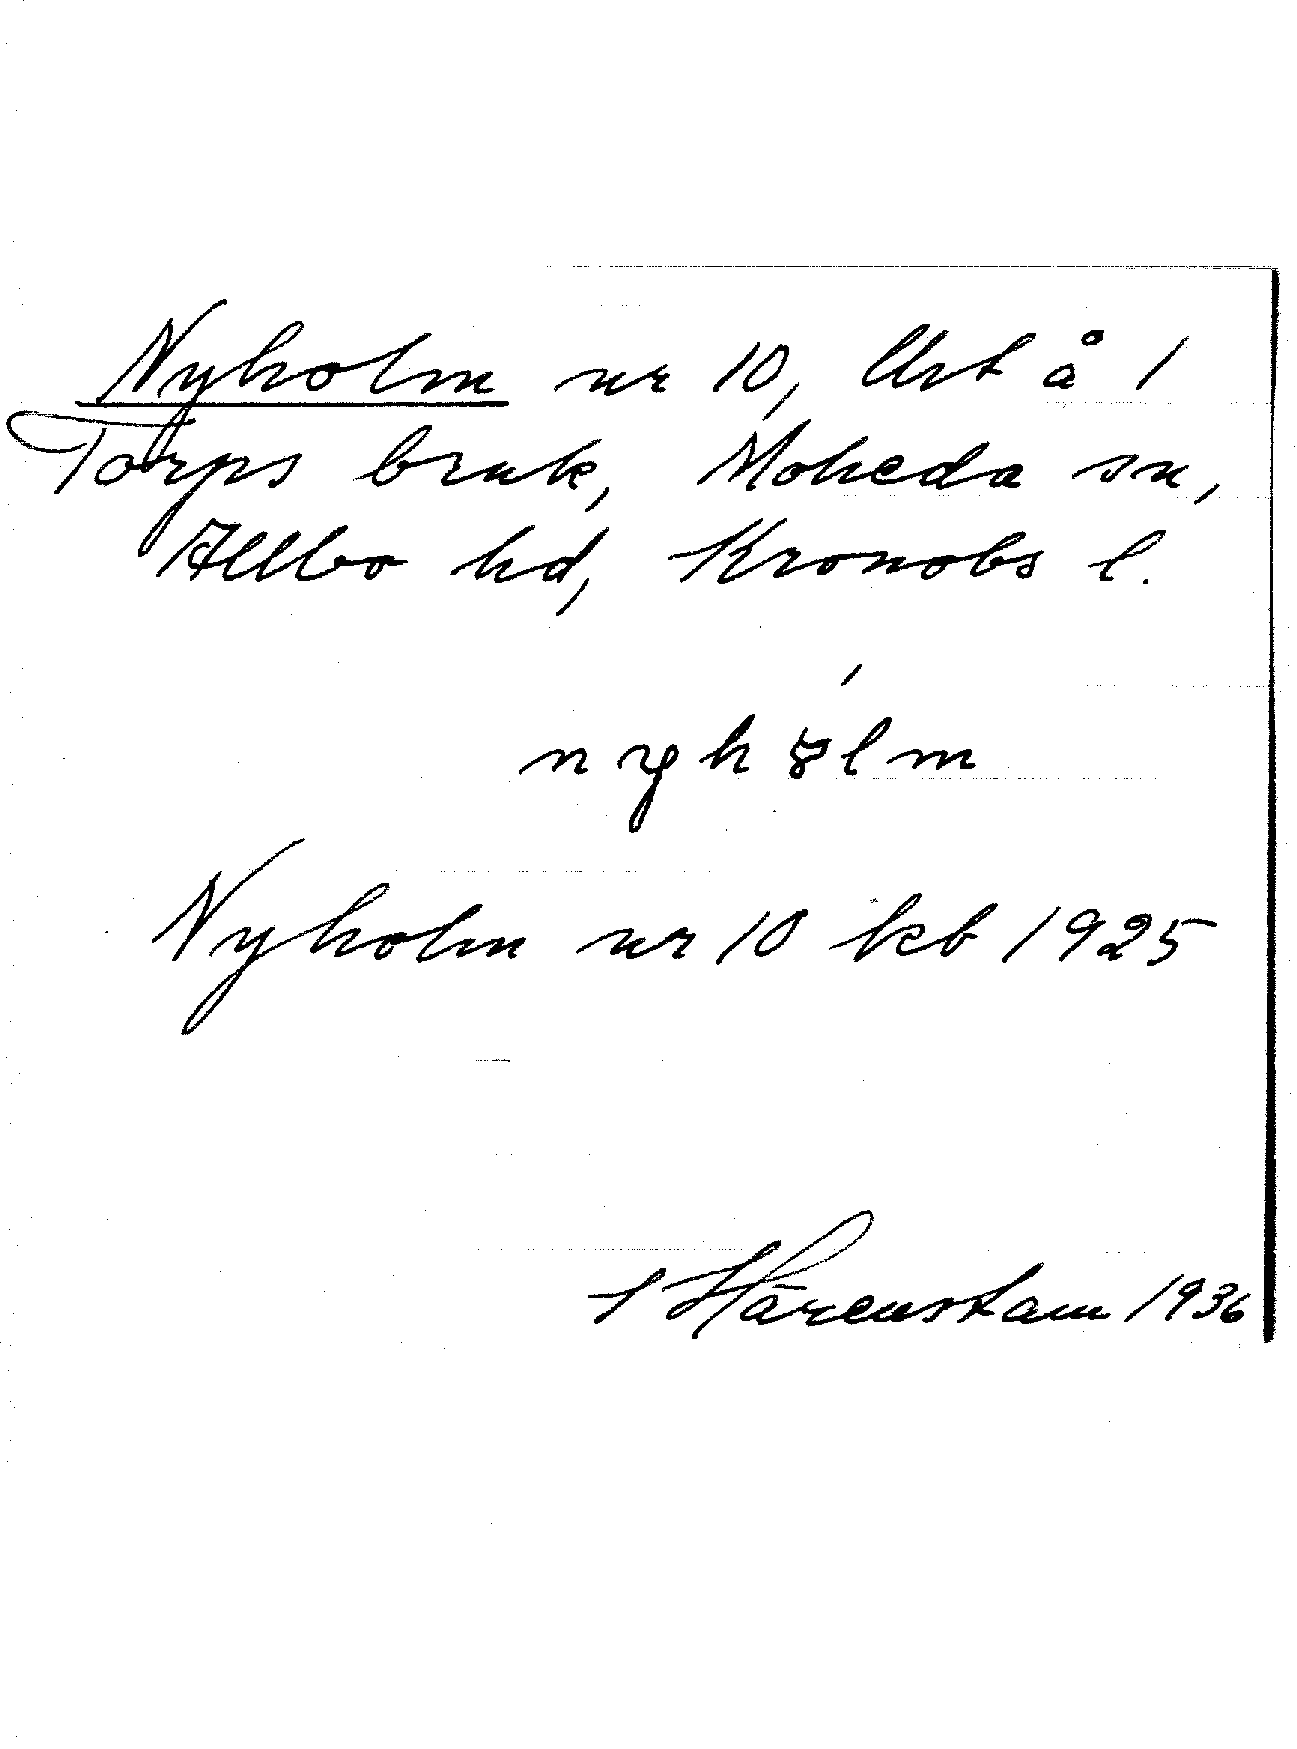 Nyholm nr 10, Urt å 1
Torps bruk, Moheda sn,
Allbo hd, Kronobs l.
Nyholm nr 10 kb 1925
Härenstam 1936